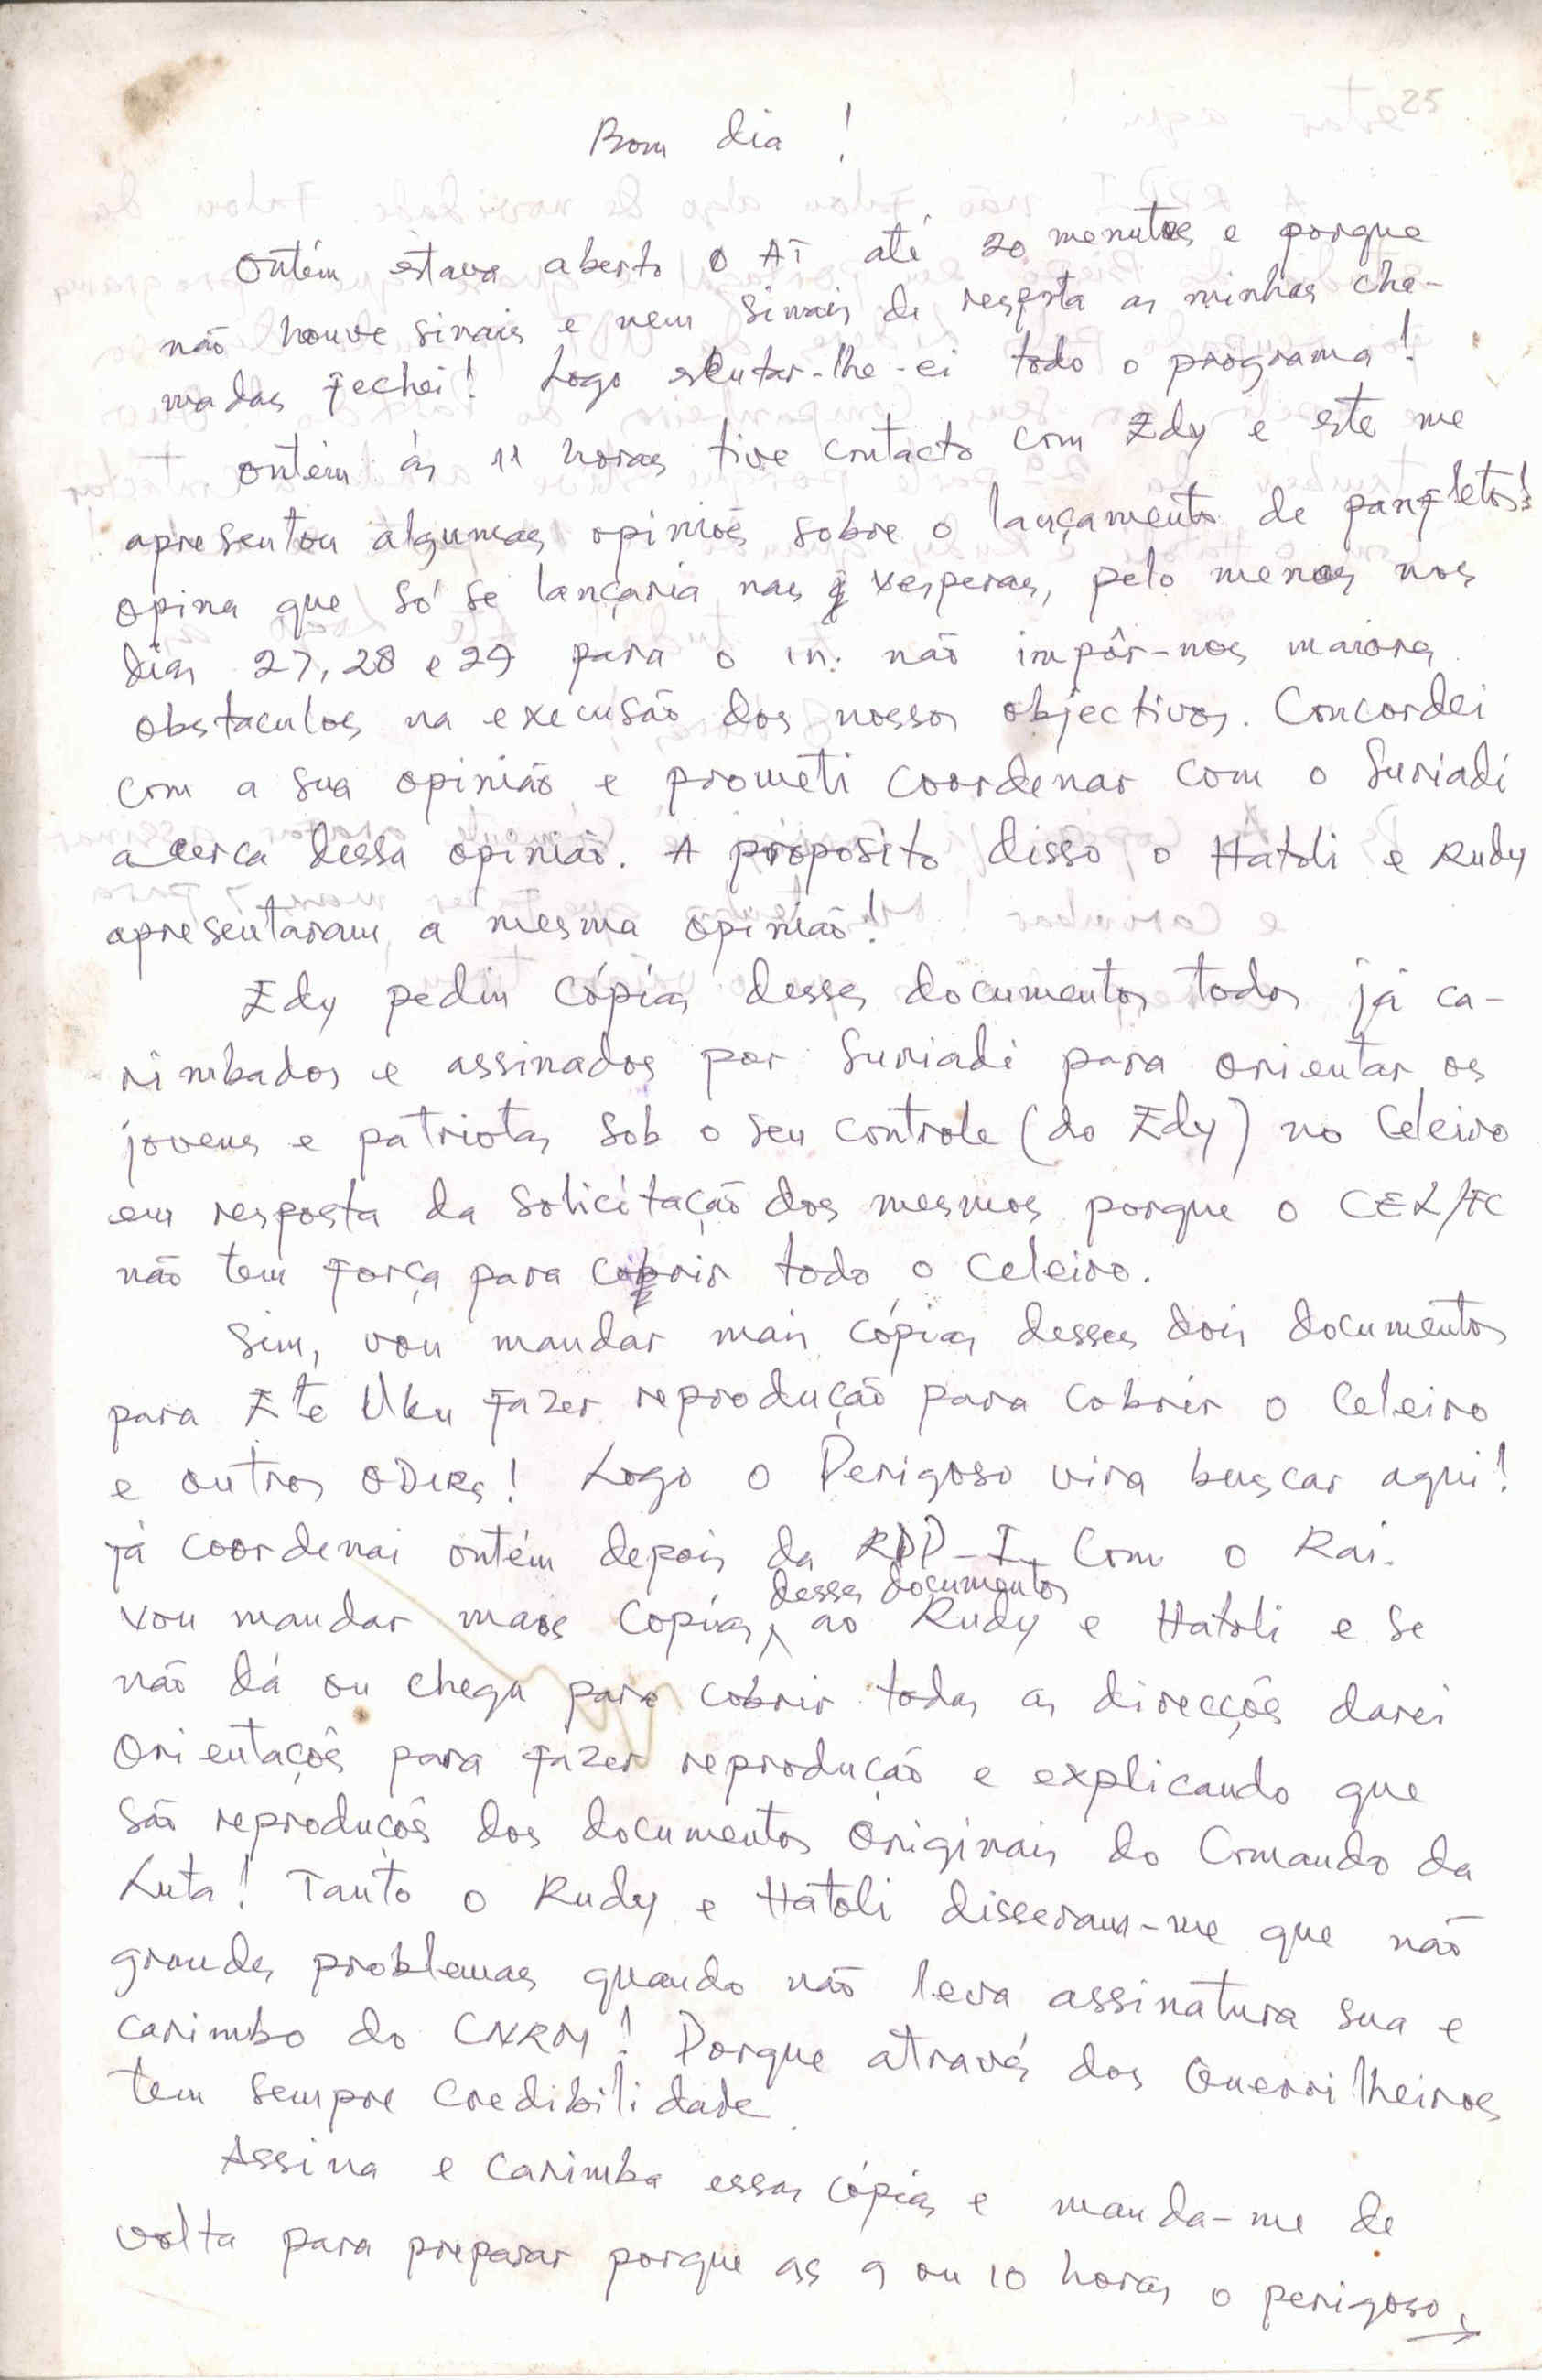 25
Bom dia !
Ontém estava aberto o AT até 20 menutos e porque
não houve sinais e nem sinais de resposta as minhas cha-
madas fechei! Logo escutar-lhe-ei todo o programa!
Ontém ás 11 horas tive contacto com Edy e este me
apresentou algumas opiniões sobre o lançamento de panfletos!
opina que só se lançaria nas vesperas, pelo menos nos
dias 27, 28 e 29 para o in. não impôr-nos maiores
obstaculos na execusão dos nossos objectivos. Concordei
com a sua opinião e prometi coordenar com o Suriadi
acerca dessa opinião. A proposito disso o Hatoli e Rudy
apresentaram a mesma opinião!
Edy pediu cópias desses documentos todos já ca-
rimbados e assinados por Suriadi para orientar os
jovens e patriotas sob o seu controle (do Edy) no Celeiro
em resposta da solicitação dos mesmos porque o CEL/FC
não tem força para cobrir todo o Celeiro.
Sim, vou mandar mais cópias desses dois documentos
para Ete Uku fazer reprodução para cobrir o Celeiro
e outros ODIRs! Logo o Perigoso vira buscar aqui!
já coordenai ontém depois da RDP-I com o Rai.
Vou mandar mais copias desses documentos ao Rudy e Hatoli e se
não dá ou chega para cobrir todas as direcções darei
Orientações para fazer reprodução e explicando que
são reproduções dos documentos Originais do Comando da
Luta! Tanto o Rudy e Hatoli disseram-me que não
grandes problemas quando não leva assinatura sua e
carimbo do CNRM! Porque através dos Guerrilheiros
tem sempre credibilidade.
Assina e carimba essas cópias e manda-me de
volta para preparar porque as 9 ou 10 horas o perigoso,
→